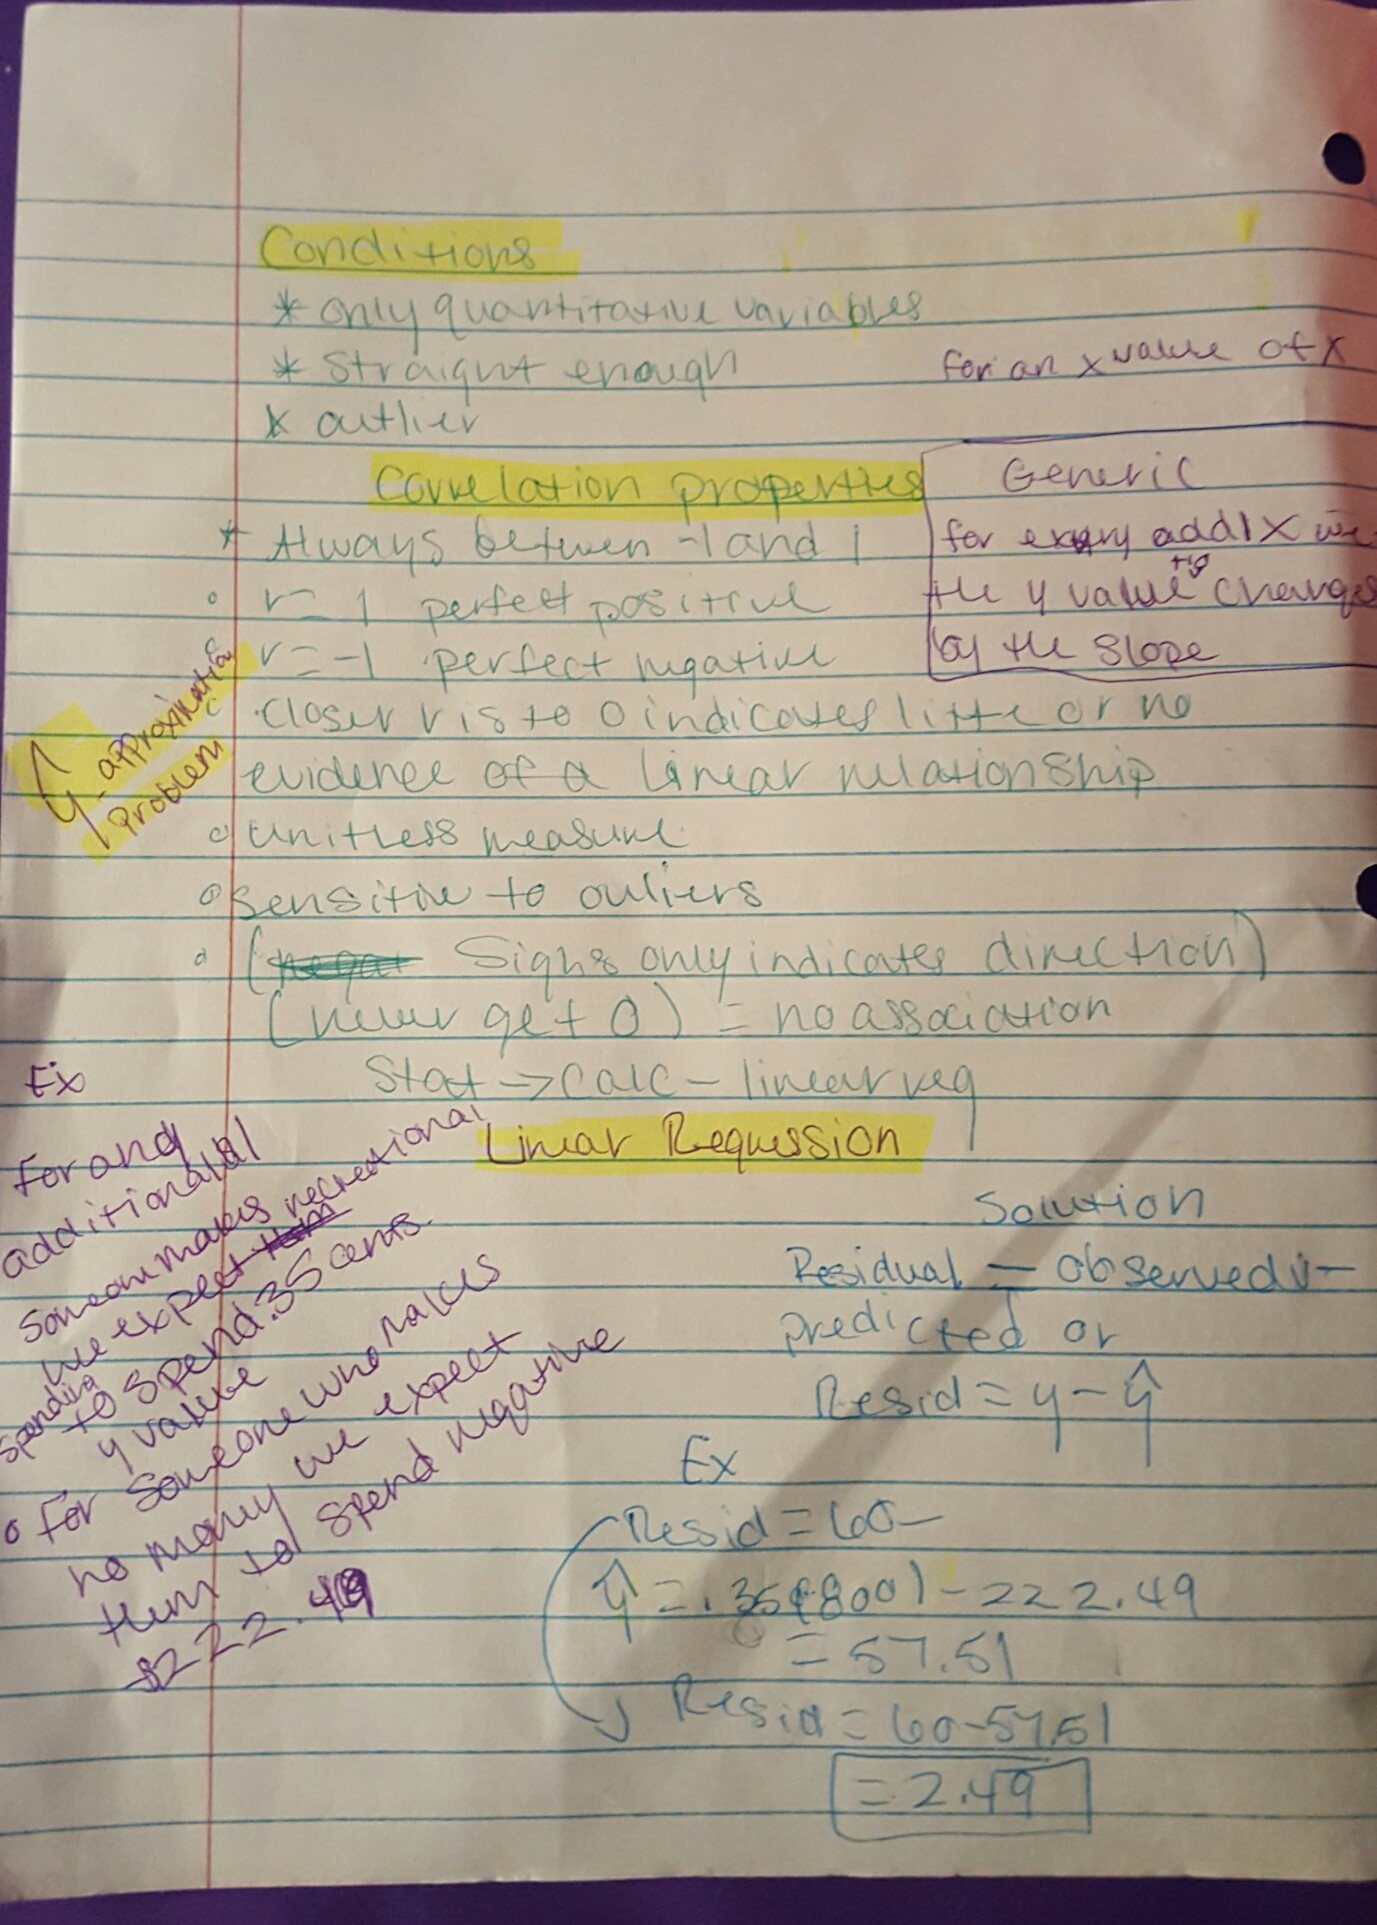 Conditions
* only quantitative variables
* Straight enough
* outlier
for an x value of x
Correlation properties
Generic
for every addl x we
the y value to changes
by the slope
* Always between -1 and 1
r = 1 perfect positive
r = -1 perfect negative
closer r is to 0 indicates little or no
evidence of a linear relationship
ŷ - approximation
Problem
unitless measure
sensitive to ouliers
( Signs only indicates direction)
(never get 0) = no association
Stat -> Calc - linear reg
Linear Regression
Ex
For and
additional $1
Someone makes recreational
we expect
spending to spend .35 cents.
y value
For Someone who makes
no money we expect
them to spend negative
$222.49
Solution
Residual = observed v -
predicted or
Resid = y - ŷ
Ex
Resid = 60 -
ŷ = .35(800) - 222.49
= 57.51
Resid = 60 - 57.51
= 2.49